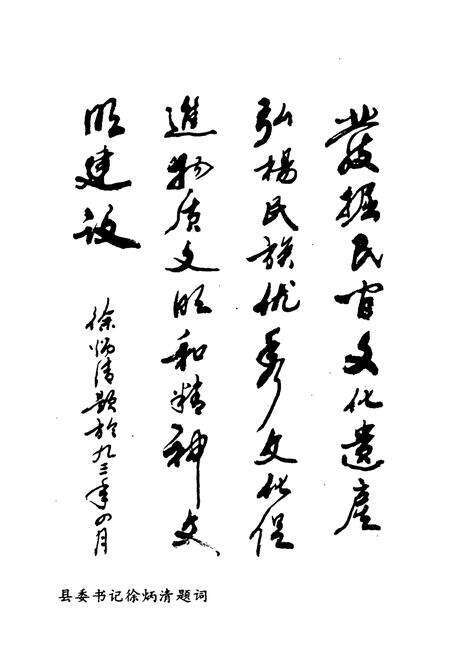 發掘民间文化遗产
弘楊民族优秀文化促
進物质文明和精神文
明建设
徐炳清题於九三年四月
县委书记徐炳清题词